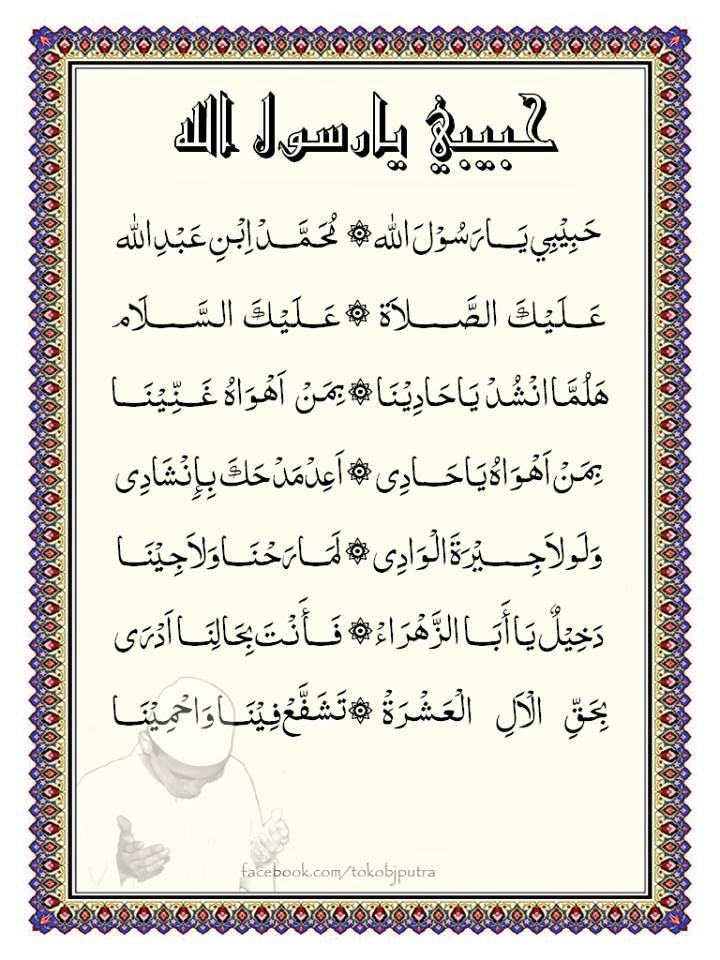 حبيبي يارسول الله
حَبِيْبِي يَا رَسُوْلَ الله ۞ مُحَمَّدْ اِبْنِ عَبْدِ الله
عَلَيْكَ الصَّلاَة ۞ عَلَيْكَ السَّلَام
هَلُمَّا انْشُدْ يَا حَادِيْنَا ۞ بِمَنْ اَهْوَاهُ غَنِّيْنَا
بِمَنْ اَهْوَاهُ يَا حَادِى ۞ اَعِدْ مَدْحَكَ بِإِنْشَادِى
وَلَولاَ جِيْرَةَ الْوَادِى ۞ لَمَا رَحْنَا وَلاَ جِيْنَا
دَخِيْلٌ يَا أَبَا الزَّهْرَاءْ ۞ فَأَنْتَ بِحَالِنَا اَدْرَى
بِحَقِّ الْاَلِ الْعَشْرَةْ ۞ تَشَفَّعْ فِيْنَا وَاحْمِيْنَا
facebook.com/tokobjputra